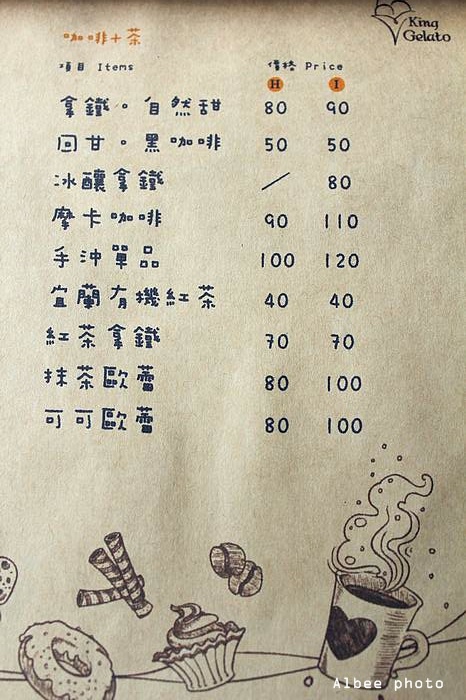 King
Gelato
咖啡+茶
項目 Items 價格 Price
H I
拿鐵。自然甜 80 90
回甘。黑咖啡 50 50
冰釀拿鐵 / 80
摩卡咖啡 90 110
手沖單品 100 120
宜蘭有機紅茶 40 40
紅茶拿鐵 70 70
抹茶歐蕾 80 100
可可歐蕾 80 100
Albee photo